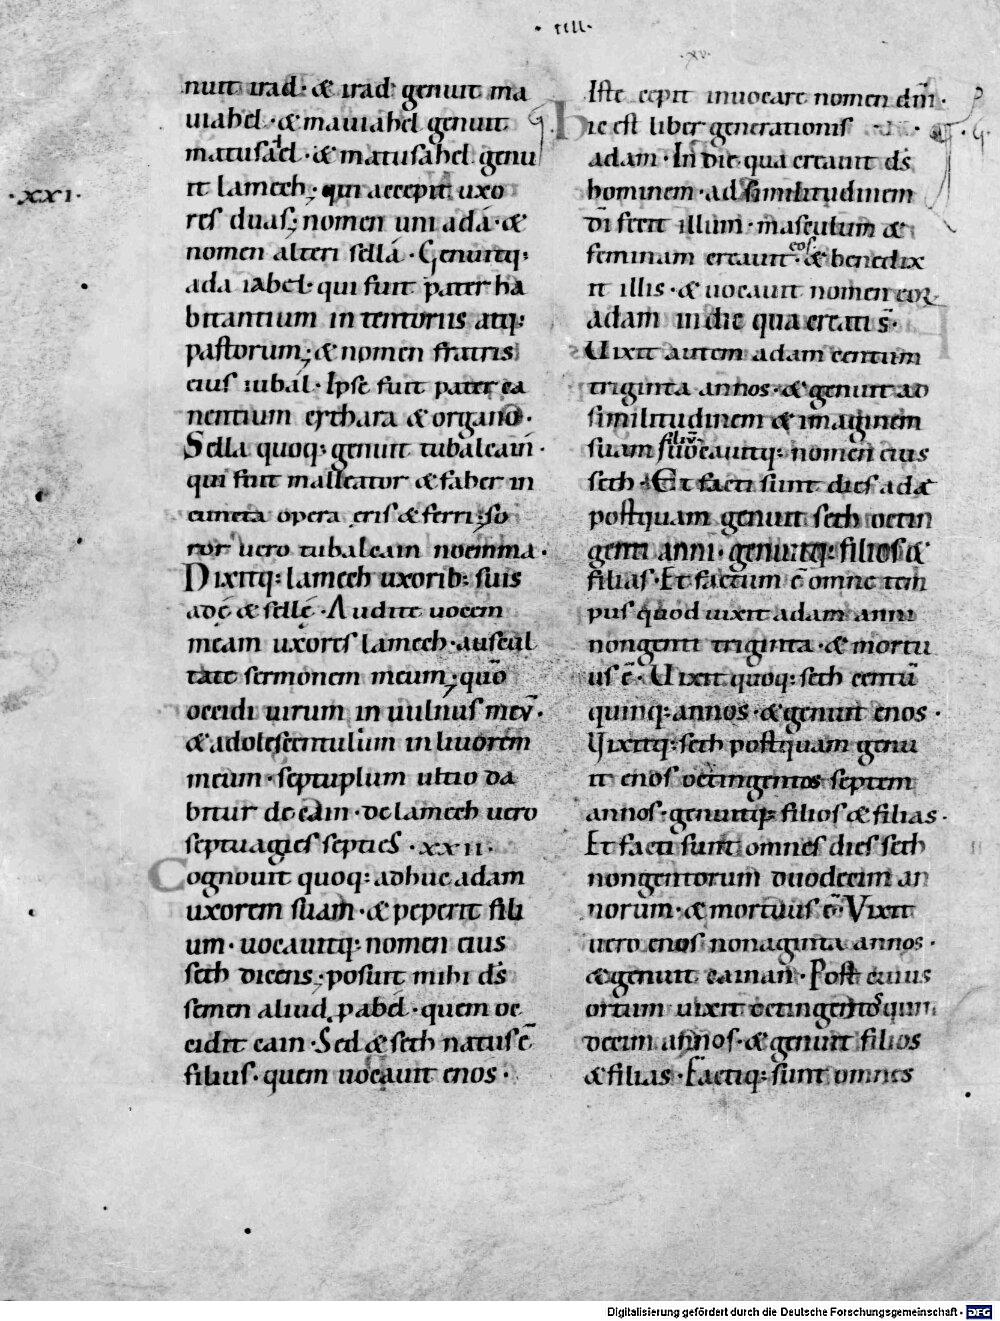 · IIII ·
· xv ·
nuit irad · & irad genuit ma
uiahel · & mauiahel genuit
matusael · & matusahel genu
it lamech; qui accepit uxo
· XXI ·
res duas; nomen uni adā · &
nomen alteri sellā · Genuitq:
ada iabel · qui fuit pater ha
bitantium in tentoriis atq:
pastorum; & nomen fratris
eius iubal · Ipse fuit pater ca
nentium cythara & organo ·
Sella quoq: genuit tubalcain ·
qui fuit malleator & faber in
cuncta opera ęris & ferri; so
ror uero tubalcain noemma ·
Dixitq: lamech uxorib: suis
adę & sellę · Audite uocem
meam uxores lamech · auscul
tate sermonem meum; qūo
occidi uirum in uulnus meū ·
& adolescentulum in liuorem
meum · septuplum ultio da
bitur de cain · de lamech uero
septuagies septies · XXII ·
Cognouit quoq: adhuc adam
uxorem suam · & peperit fili
um · uocauitq: nomen eius
seth dicens; posuit mihi ds̄
semen aliud p abel · quem oc
cidit cain · Sed & seth natus ē
filius · quem uocauit enos ·
Iste cepit inuocare nomen dn̄i ·
hic est liber generationis
adam · In die qua creauit ds̄
hominem · ad similitudinem
dī fecit illum · masculum &
feminam creauit eos · & benedix
it illis · & uocauit nomen eor
adam in die qua creati s̄ ·
Uixit autem adam centum
triginta annos · & genuit ad
similitudinem & imaginem
suam filiū uocauitq: nomen eius
seth · Et facti sunt dies adā
postquam genuit seth octin
genti anni · genuitq: filios &
filias · Et factum ē omne tem
pus quod uixit adam anni
nongenti triginta · & mortu
us ē · Uixit quoq: seth centū
quinq: annos · & genuit enos ·
Uixitq: seth postquam genu
it enos octingentos septem
annos · genuitq: filios & filias ·
Et facti sunt omnes dies seth
nongentorum duodecim an
norum · & mortuus ē · Vixit
uero enos nonaginta annos ·
& genuit cainan · Post cuius
ortum uixit octingentos quin
decim annos · & genuit filios
& filias · Factiq: sunt omnes
Digitalisierung gefördert durch die Deutsche Forschungsgemeinschaft - DFG